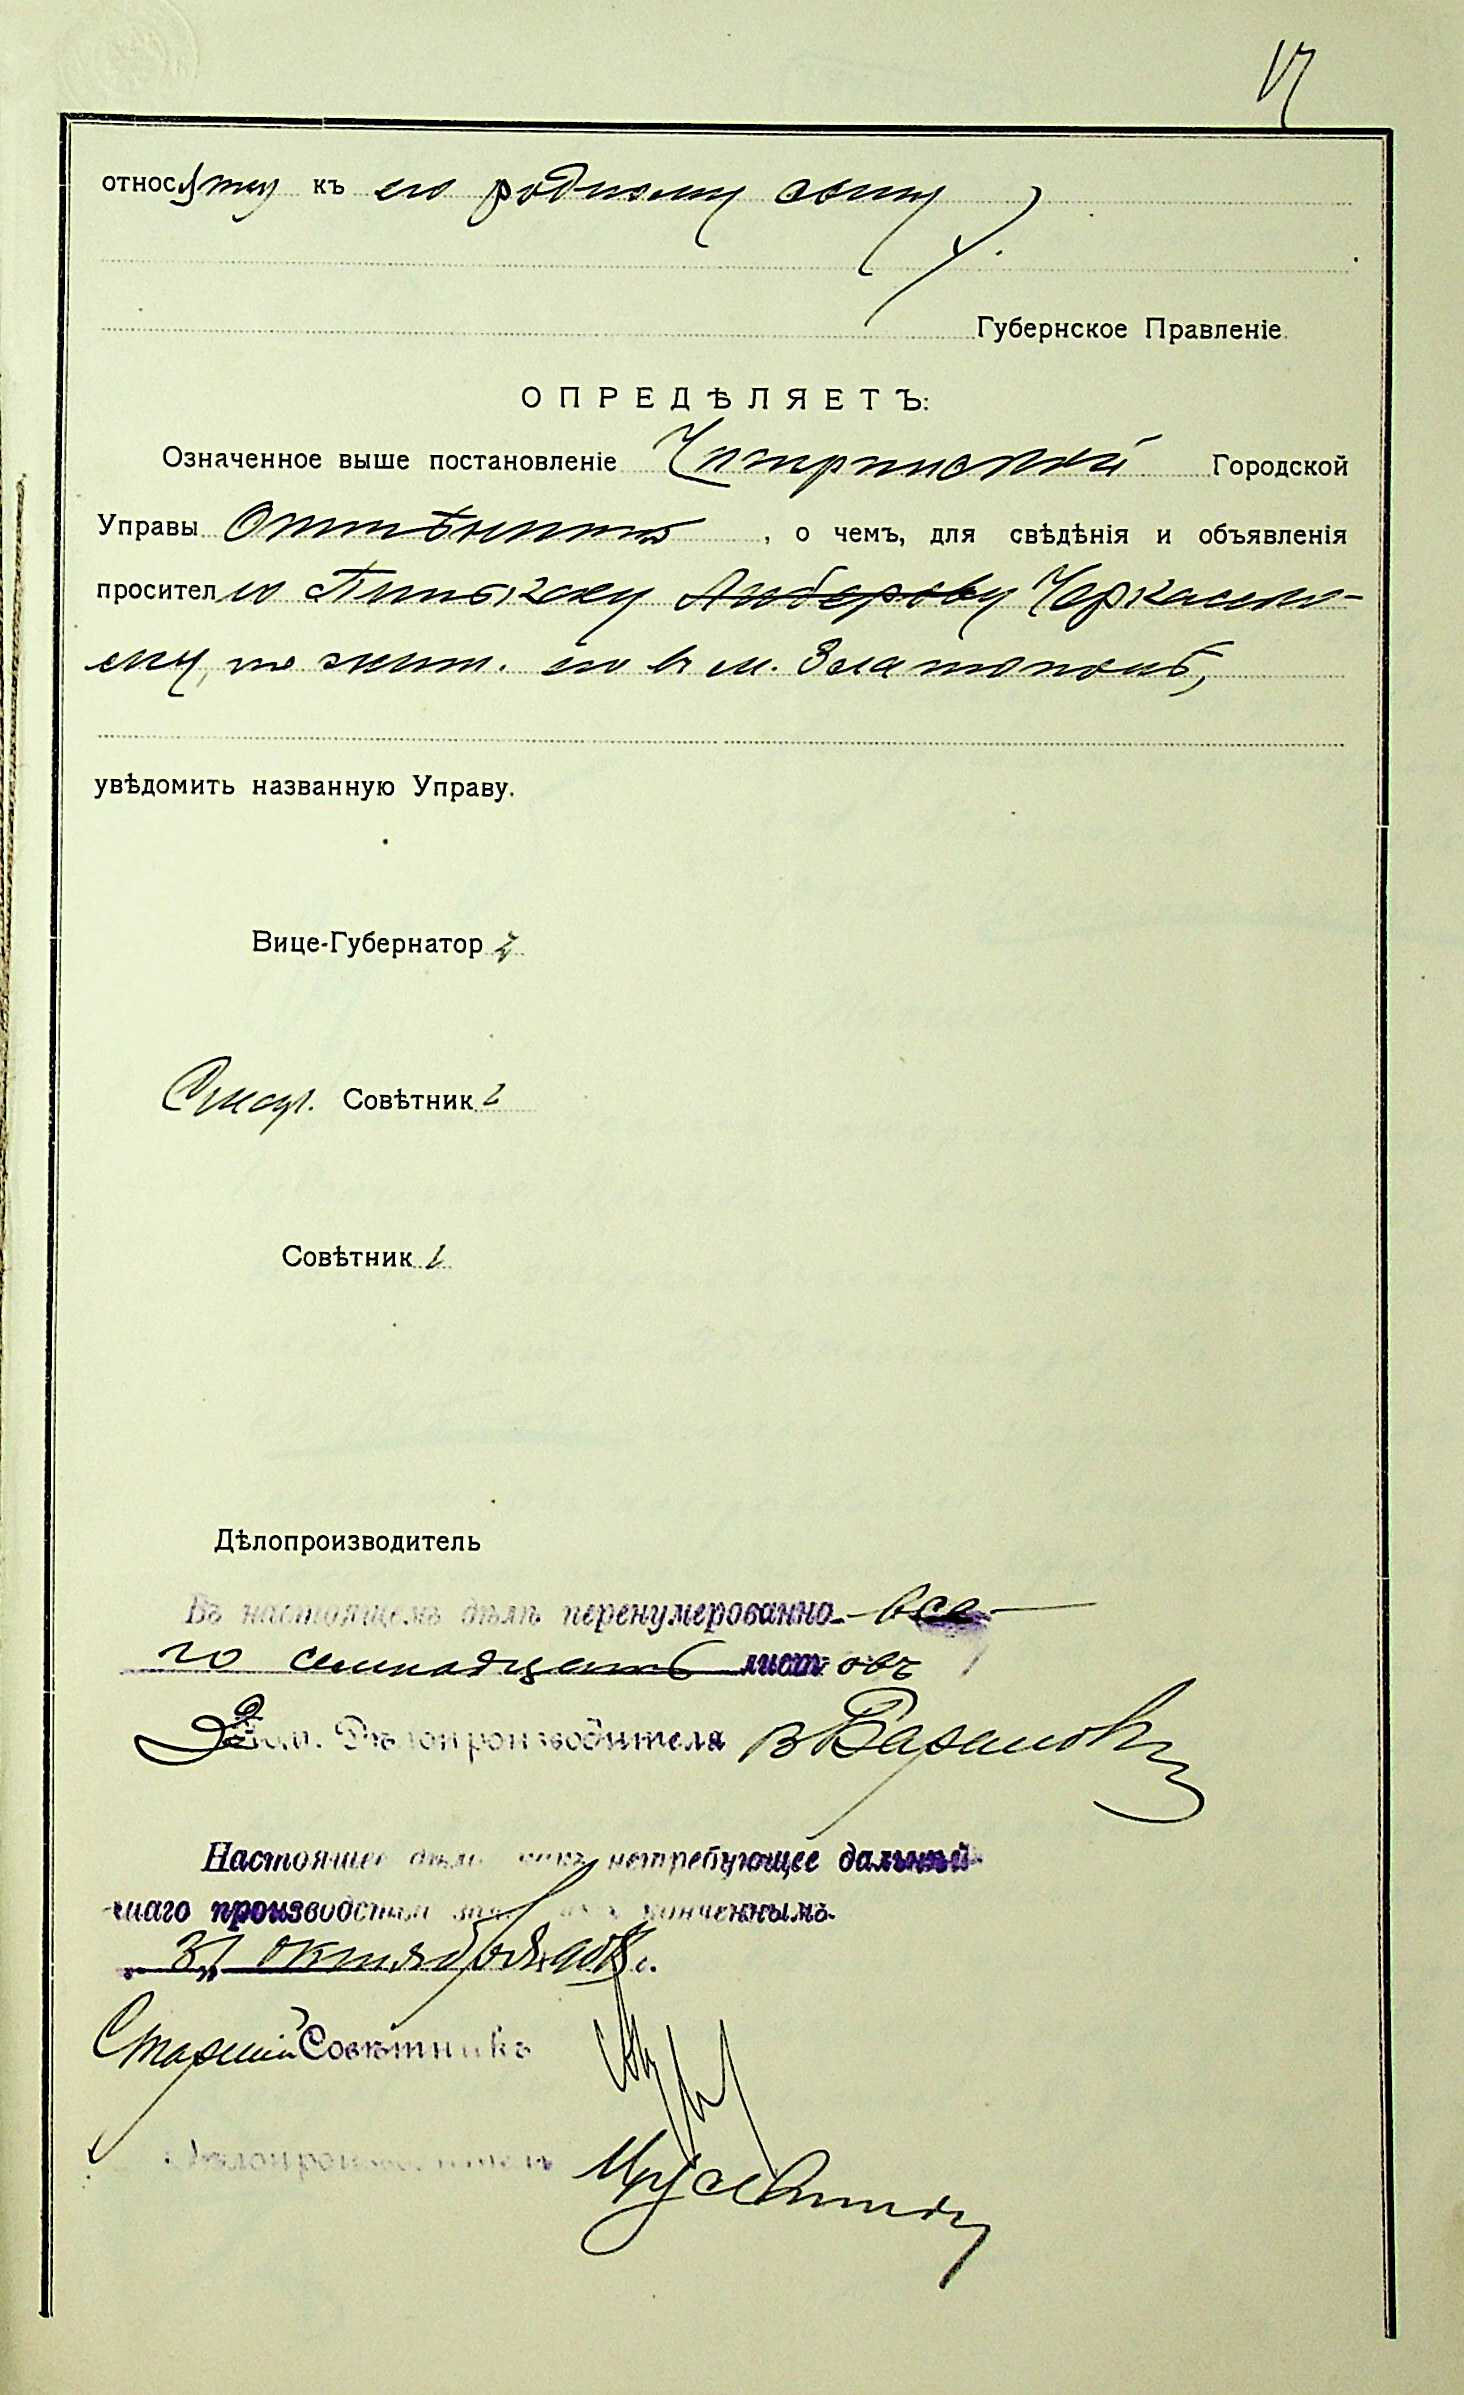 17
относящему къ его родному сыну
Губернское Правленіе.
ОПРЕДѢЛЯЕТЪ:
Означенное выше постановленіе Чигиринской Городской
Управы Отмѣнить, о чемъ, для свѣдѣнія и объявленія
просителю Пинхасу Либерову Черкасско-
му, жит. въ м. Златополѣ,
увѣдомить названную Управу.
Вице-Губернатор
Совѣтник
Совѣтник
Дѣлопроизводитель
Въ настоящемъ дѣлѣ перенумерованно все-
го семнадцать листовъ
Пом. Дѣлопроизводителя
Настоящее дѣло какъ нетребующее дальнѣй-
шаго производства конченнымъ.
31 октября 1908 г.
Старшій Совѣтникъ
Дѣлопроизводитель